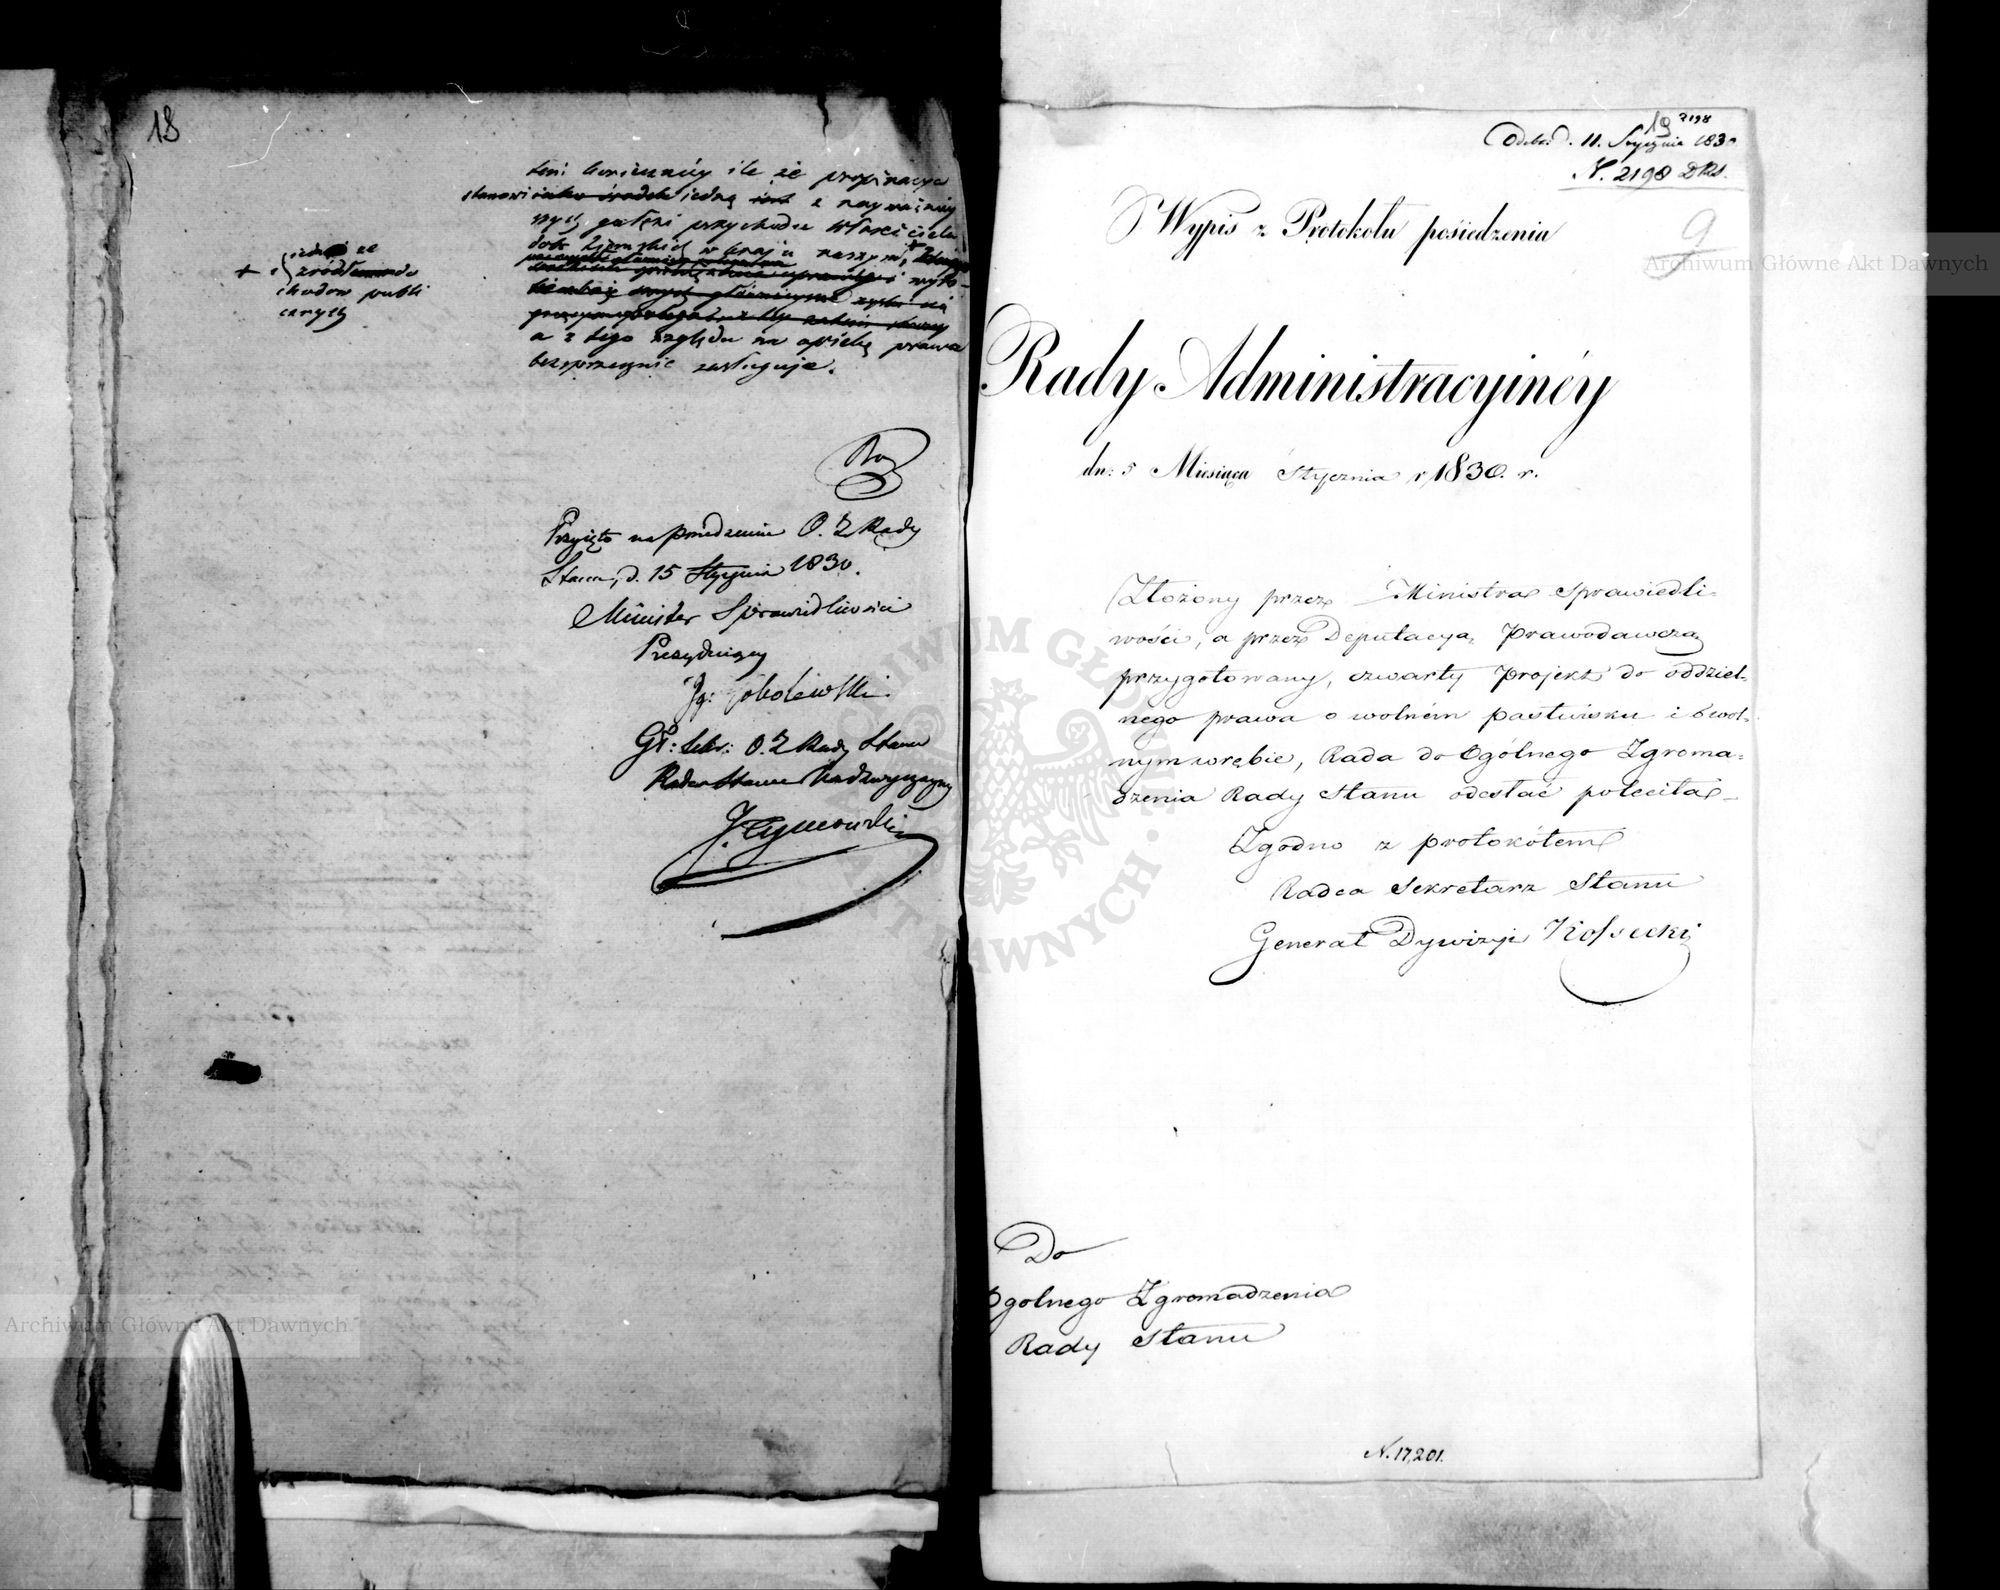 18
tém konieczniéy ile że propinacya
stanowi jedną z nayważniéy
szych gałęzi przychodu Właścicieli
dóbr Ziemskich w kraju naszym,
a z tego względu na opiekę prawa
bezsprzecznie zasługuje.
+ i jedno ze
źródeł do
chodów publi
cznych
Przyięto na posiedzeniu O. Z. Rady
Stanu, d. 15 Stycznia 1830.
Minister Sprawiedliwości
Prezyduiący
Ig: Sobolewski.
Gł: Sekr: O. Z. Rady Stanu
Radca Stanu Nadzwyczayny
J. Tymowski
19 2198
Odebr. d. 11. Stycznia 1830
N. 2198 DRS.
9
Wypis z Protokołu posiedzenia
Rady Administracyinéy
dn: 5 Miesiąca Stycznia r. 1830. r.
Złożony przez Ministra Sprawiedli-
wości, a przez Deputacyą Prawodawczą
przygotowany, czwarty Projekt do oddziel-
nego prawa o wolném pastwisku i o wol-
nym wrębie, Rada do Ogólnego Zgroma-
dzenia Rady Stanu odesłać poleciła
Zgodno z protokółem
Radca Sekretarz Stanu
Generał Dywizyi Kossecki
Do
Ogolnego Zgromadzenia
Rady Stanu
N. 17,201.
Archiwum Główne Akt Dawnych
Archiwum Główne Akt Dawnych
ARCHIWUM GŁÓWNE AKT DAWNYCH